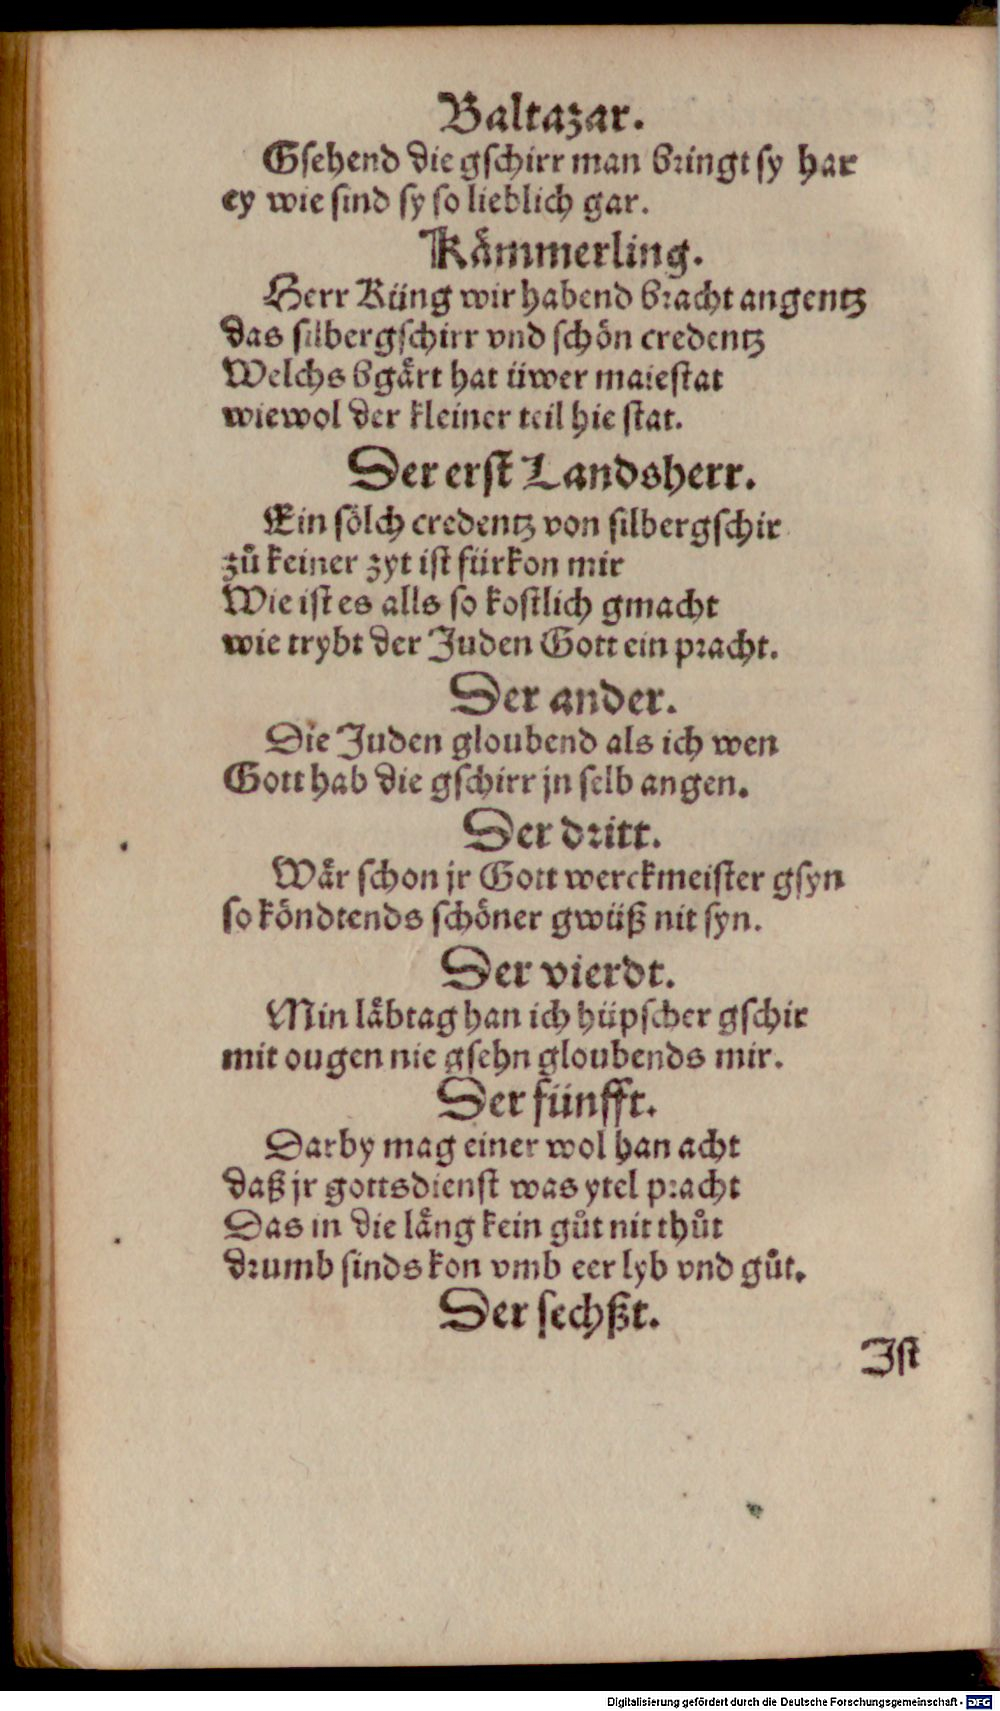 Baltazar.
Gsehend die gschirr man bringt sy har
ey wie sind sy so lieblich gar.
Kåmmerling.
Herr Küng wir habend bracht angentz
das silbergschirr vnd schön credentz
Welchs bgårt hat üwer maiestat
wiewol der kleiner teil hie stat.
Der erst Landsherr.
Ein sölch credentz von silbergschir
zů keiner zyt ist fürkon mir
Wie ist es alls so kostlich gmacht
wie trybt der Juden Gott ein pracht.
Der ander.
Die Juden gloubend als ich wen
Gott hab die gschirr jn selb angen.
Der dritt.
Wår schon jr Gott werckmeister gsyn
so köndtends schöner gwüß nit syn.
Der vierdt.
Min låbtag han ich hüpscher gschir
mit ougen nie gsehn gloubends mir.
Der fünfft.
Darby mag einer wol han acht
daß jr gottsdienst was ytel pracht
Das in die lång kein gůt nit thůt
drumb sinds kon vmb eer lyb vnd gůt.
Der sechßt.
Ist
Digitalisierung gefördert durch die Deutsche Forschungsgemeinschaft - DFG